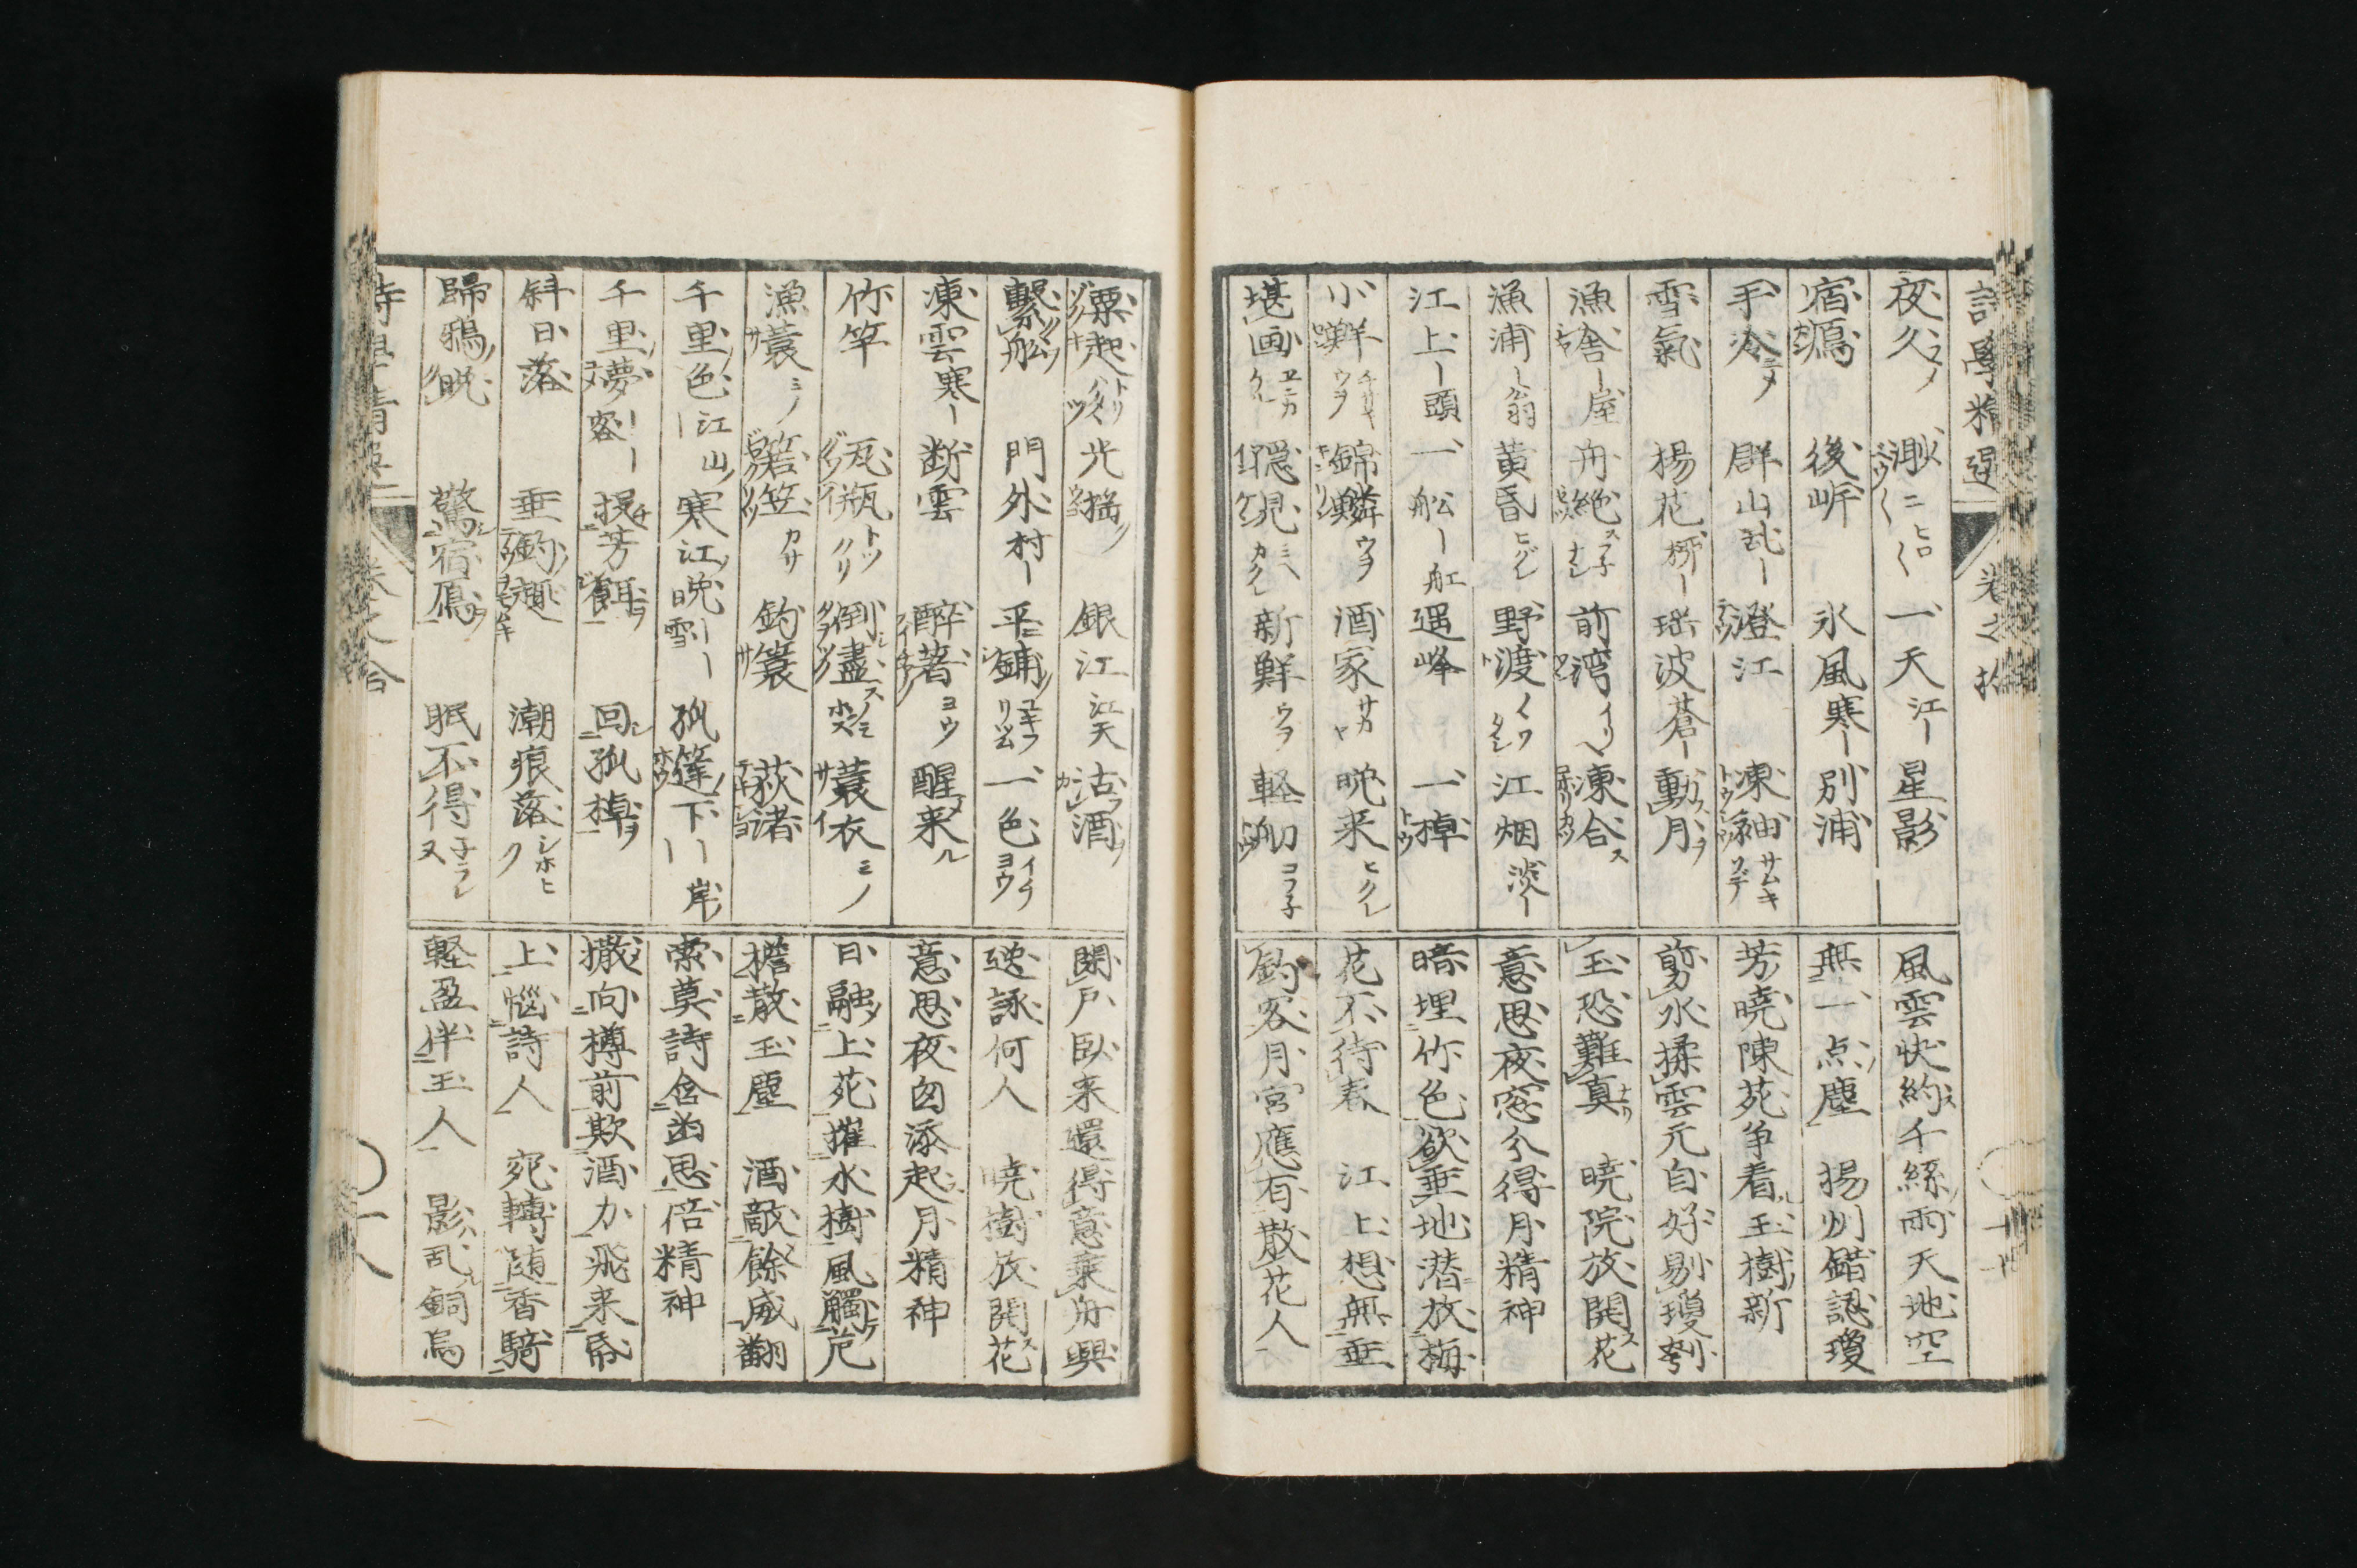 詩學精選 卷之拾
夜久 渺 一天 江 星影
宿鴈 後岸 氷風寒 別浦
手冷 群山乱 澄江 凍袖 サムキソデ
雪氣 楊花 柳 瑶波 蒼 動月
漁舎 屋 舟絶 前湾 凍合
漁浦 翁 黄昏 ヒグレ 野渡 江烟 淡
江上 頭 一船 舡 遥峰 一棹
小鮮 ウヲ 錦鱗 ウヲ 酒家 サカヤ 晩来 ヒクレ
堪画 隠見 新鮮 ウヲ 軽舠 コフ子
風雲快約千絲雨天地空
無一点塵 揚州錯認瓊
芳暁陳苑争看玉樹新
剪水揉雲元自好剔瓊
玉恐難真 暁院放開花
意思夜窓分得月精神
暗埋竹色欲垂地潜放梅
花不待春 江上想無垂
釣客月宮應有散花人
粟起 光揺 銀江 江天 沽酒
繋船 門外 村 平鋪 一色
凍雲 寒 断雲 醉著 ヨウ 醒来
竹竿 瓦瓶 倒盡 蓑衣 ミノ
漁蓑 ミノ 箬笠 カサ 釣簑 荻渚
千里色 江山 寒江晩 雪 孤篷下 岸
千里夢 客 投芳餌 回孤棹
斜日落 垂釣趣 潮痕落
歸鴉晩 驚宿鴈 眠不得
閉戸臥来還得意乗舟興
逸詠何人 暁樹放開花
意思夜囱添起月精神
日融上苑摧氷樹風觸
擔散玉塵 酒敵餘威翻
索莫詩含凾思倍精神
撒向樽前欺酒力飛来
上惱詩人 宛轉随香騎
軽盈伴玉人 影乱銅烏
卷之合
八